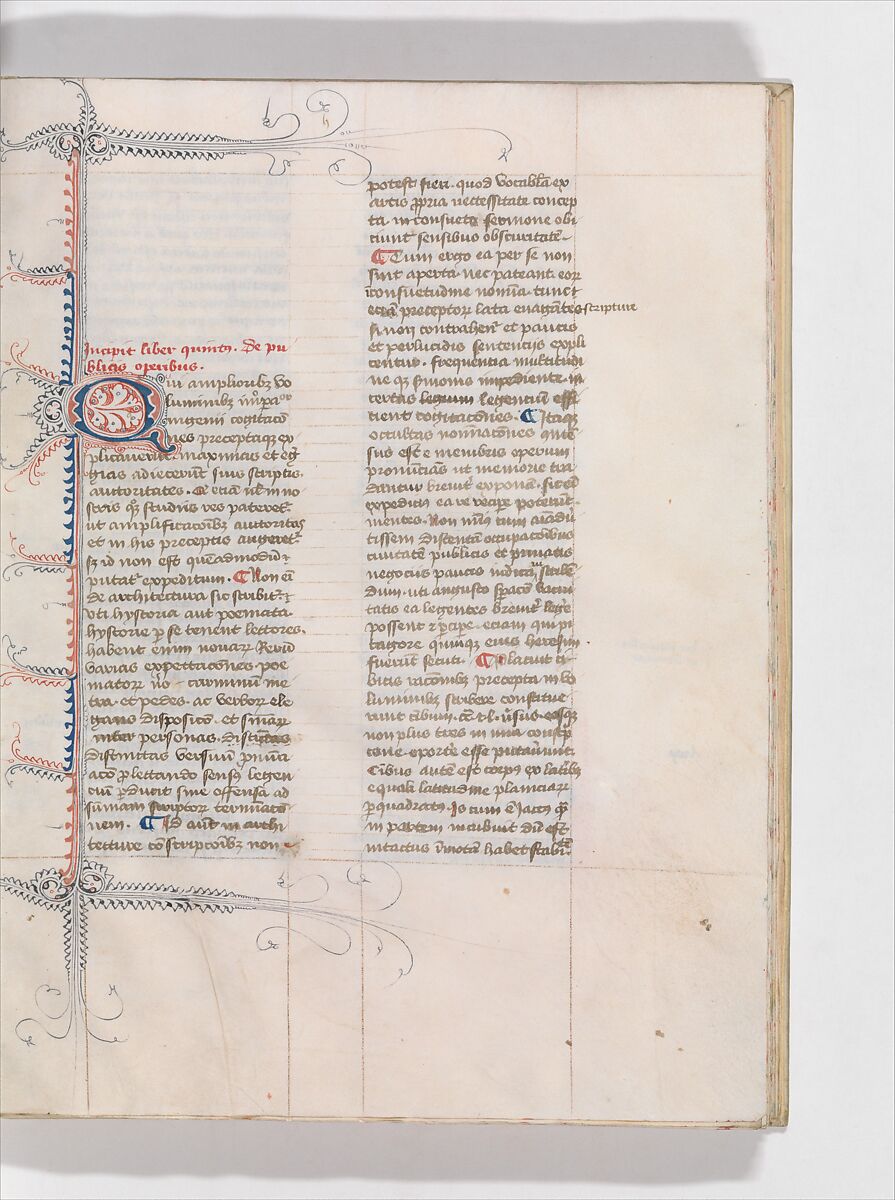 Incipit liber quintus. De pu
blicis operibus.
Qui amplioribz vo
luminibz
ingenii cogitacio
nes preceptaque ex
plicaverunt maximas et eg
gias adiecerunt suis scriptis.
autoritates.
studiis res pateret.
ut amplificacoibz autoritas
et in his preceptis augeret.
sz id non est quēadmodū
putat expeditum. Non eī
de architectura sic scribit
Uti hystoria aut poemata.
hystorie p se tenent lectores.
habent enim novarum Rerū
varias expettacōnes poe
matorum vō carminum me
tra et pedes. ac verborum ele
gans disposicō. et sniarum
inter personas. distictas
distinttas versuum
sensus legen
tiū perducit sine offensa ad
sūmam scriptorum terminacō
nem. Id aūt in archi
tetture cōscripcōibz non
potest fieri. quod vocabl'a ex
artis ppria nettessitate concep
ta. in consueto sermone obi
ciunt sensibus obscuritatē.
Cum ergo ea per se non
sint aperta. nec pateant eorum
ī consuetudine nomīa. tunc
etiā preceptorum lata evagātes scripture
si non contrahent et paucis
et perlucidis sentenciis expli
centur. frequencia multitudi
ne que sermonis impediente. in
certas legum legencium effi
cient cogitacōnes. Itaque
occultas nominacōnes
suis est e membris operum
pronuncians ut memorie tra
dantur brevit exponā. sic ei
expedicius ea recipe poterūt
mentes. Non mīus cum aīadv
tissem distentā occupacōibus
civitatē publicis et privatis
negociis paucis indicavi scribē
dum. uti angusto spacō vacui
tatis ea legentes brevit
possent percipe. etiam qui pi
tagore quique eius heresim
fuerūt secuti. Placuit cy
bicis racōnibz precepta in vo
luminibz scribere constitue
runt cibum. cc. t. l. vsus. eosque
non plus tres in una conscp
cōne oportē esse putaverunt.
Cibus autē est corpus ex lateribz
equali latitudine planiciarum
pquadratus. Is cum e iacet quā
in partem incubuit dū est
intactus īmotam habet stabi